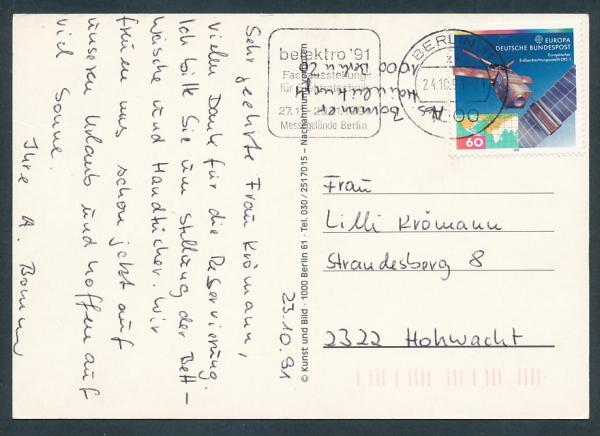 Sehr geehrte Frau Krömann,
vielen Dank für die Reservierung.
Ich bitte Sie um Stellung der Bett-
wäsche und Handtücher. Wir
freuen uns schon jetzt auf
unseren Urlaub und hoffen auf
viel Sonne.
Ihre A.
23.10.91
© Kunst und Bild · 1000 Berlin 61 · Tel. 030/2517015 – Nachahmung verboten
belektro '91
Fachausstellung
27.
Messegelände Berlin
Abs.
1000 Berlin
BERLIN
24.10.91
EUROPA
DEUTSCHE BUNDESPOST
Europäischer
Erdbeobachtungssatellit ERS-1
60
Frau
Lilli Krömann
Strandesberg 8
2322 Hohwacht